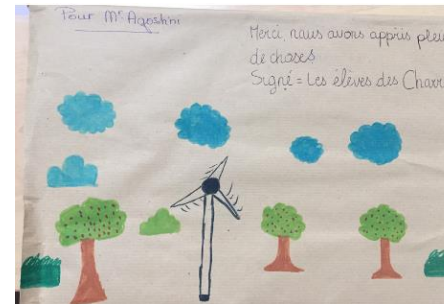 Pour Mr Agostini
Merci nous avons appris
de choses
Signé = Les élèves des